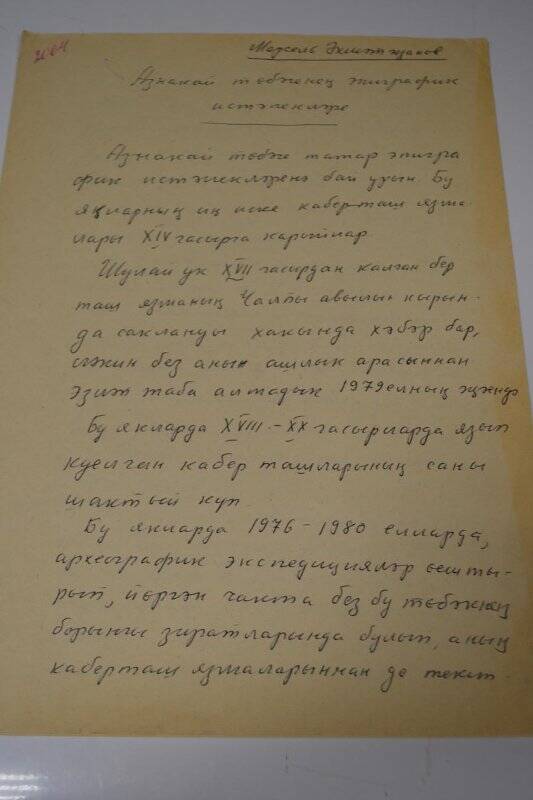 Марсель Әхмәтҗанов
Азнакай төбәгенең эпиграфик
истәлекләре
Азнакай төбәге татар эпигра
фик истәлекләренә бай урын. Бу
якларның иң иске кабер таш язма
лары XIV гасырга карыйлар.
Шулай ук XVII гасырдан калган бер
таш язманың Чалпы авылы кырын-
да саклануы хакында хәбәр бар,
ләкин без аны ашлык арасыннан
эзләп таба алмадык 1979 елның җәендә
Бу якларда XVIII – XX гасырларда язып
куелган кабер ташларының саны
шактый күп.
Бу якларда 1976 – 1980 елларда,
археографик экспедицияләр оешты-
рып, йөргән чакта без бу төбәкнең
борынгы зиратларында булып, аның
кабертáш язмаларыннан да текст